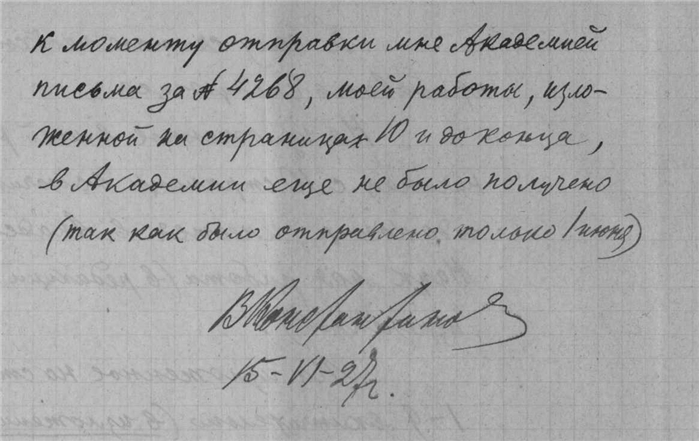 к моменту отправки мне Академией
письма за № 4268, моей работы, изло-
женной на страницах 10 и до конца,
в Академии еще не было получено
(так как было отправлено только 1 июня)
ВКонстантинов
15-VI-27г.